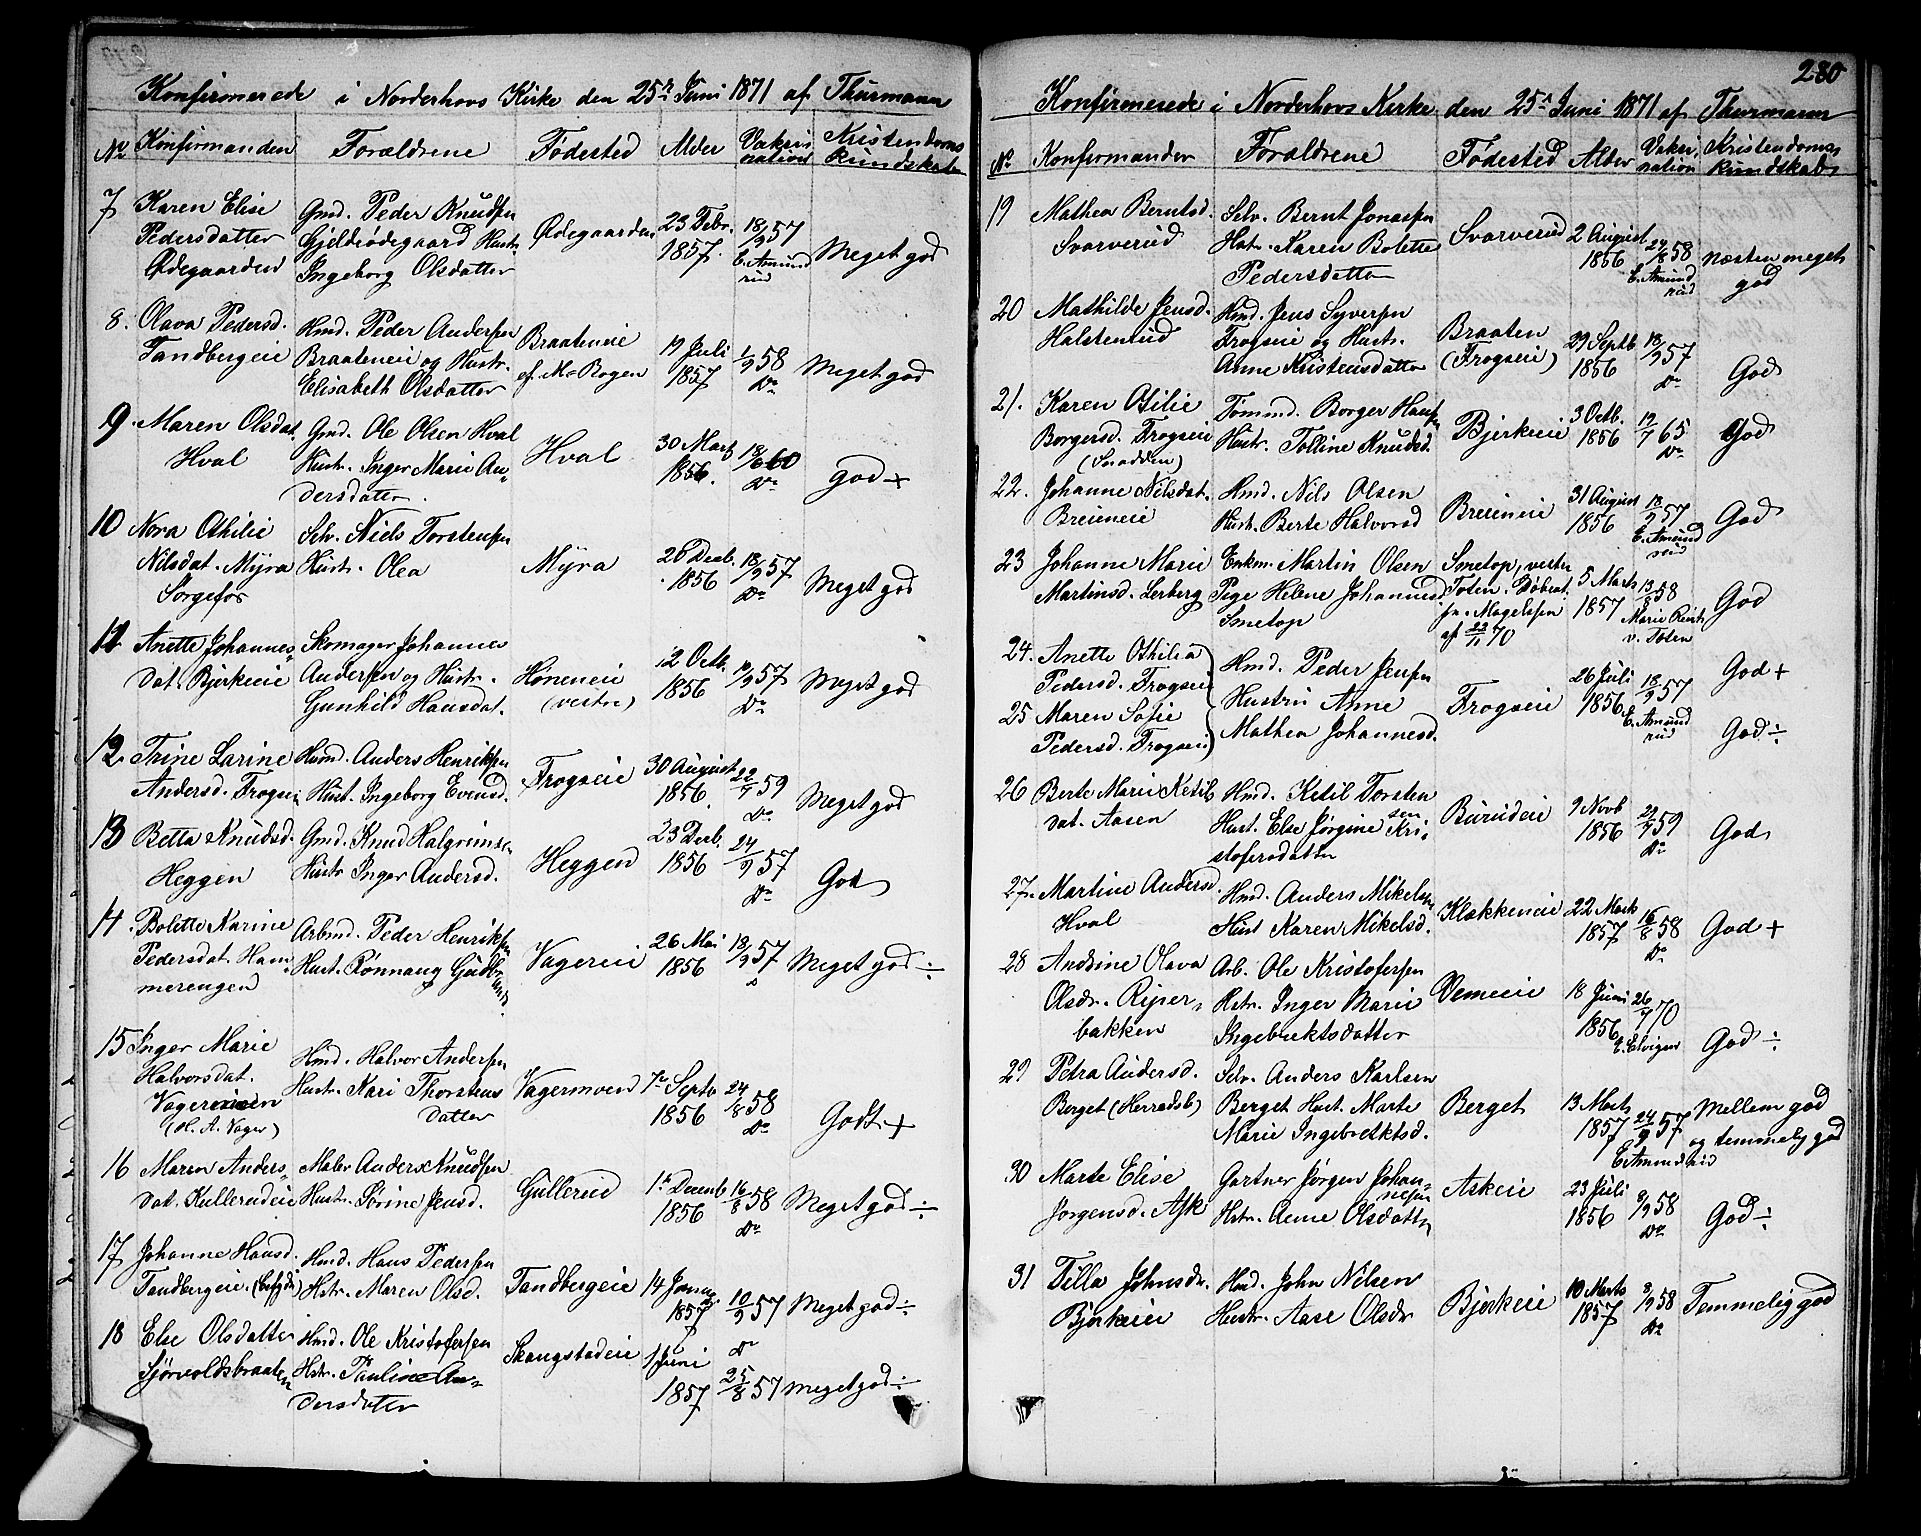 Konfirmerede i Norderhovs Kirke den 25r Juni 1871 af Thurmann
No Konfirmanden Forældrene Fødested Alder Vakcination Kristendoms Kundskaber
7 Karen Elise Gmd. Peder Knudsen Ødegaarden 23 Febr. 18/9 57 Meget god
Pedersdatter Gjeldsødegaard Hustr. 1857. E. Amundrud
Ødegaarden Ingeborg Olsdatter
8. Olava Pedersd. Hmd. Peder Andersen Braateneie 19 Juli 1/9 58 Meget god
Tandbergeie Braateneie og Hustr. ef. M. Bogen 1857 Do
Elisabeth Olsdatter
9 Maren Olsdat. Gmd. Ole Olsen Hval Hval 30 Marts 18/6 60 god +
Hval Hustr. Inger Marie An- 1856. Do
dersdatter.
10 Nora Othilie Selv. Niels Torstensen Myra 26 Decb. 18/9 57 Meget god
Nilsdat. Myra Hustr. Olea 1856 Do
Sørgefos
11 Anette Johannes- Skomager Johannes Høneneie 12 Octb. 10/9 57 Meget god
dat. Bjerkeeie Andersen og Hustr. (vestre) 1856 Do
Gunhild Hansdat.
12. Trine Larine Husmd. Anders Henriksen Frogseie 30 August 22/7 59 Meget god
Andersd. Frogseie Hust. Ingeborg Evensd. 1856. Do
13 Betta Knudsd. Gmd. Knud Halgrimsen Heggen 23 Decb. 24/9 57 God
Heggen Hustr Inger Andersd. 1856 Do
14. Bolette Karine Arbmd. Peder Henriksen Vagereie 26 Mai 18/9 57 Meget god ÷
Pedersdat. Ham- Hust. Rønnaug Gudbrands. 1856
merengen
15 Inger Marie Hmd. Halvor Andersen Vagermoen 7e Septb 24/8 58 Godt +
Halvorsdat. Hustr. Kari Thorstens 1856 Do
Vagereieen datter
(H. A. Vager)
16 Maren Anders- Maler Anders Knudsen Gullerud 1te Decemb 16/8 58 Meget god ÷
dat. Kullerudeie Hustr. Sørine Jensd. 1856 Do
17 Johanne Hansd. Hmd. Hans Pedersen Tandbergeie 14 Januar 10/9 57 Meget god ÷
Tandbergeie. Hstr. Maren Olsd. 1857 Do
18 Else Olsdatter Hmd. Ole Kristofersen Skaugstadeie 1 Juni 25/8 57 meget god ÷
Sjørvoldsbraaten Hstr. Pauline An- 1857
dersdatter
280
Konfirmerede i Norderhovs Kirke den 25r Juni 1871 af Thurmann
No Konfirmanden Forældrene Fødested Alder Vakcination Kristendoms Kundskab
19 Mathea Berntsd. Selv. Bernt Jonassen Svarverud 2 August 24/8 58 næsten meget
Svarverud Hstr. Karen Bolette 1856 E. Amundrud god
Pedersdatter
20 Mathilde Jensd. Hmd. Jens Syversen Braaten 29 Septb 18/9 57 God
Halstenrud Frogseie og Hustr. (Frogseie) 1856 Do
Anne Kristensdatter
21. Karen Otilie Tømmd. Borger Hansen Bjerkeeie 3 Octb. 12/7 65 God
Borgersd. Frogseie Hustr. Tolline Knudsd. 1856 Do
(Snadden)
22. Johanne Nilsdat. Hmd. Nils Olsen Breieneie 31 August 18/9 57 God
Breieneie Hustr. Berte Halvorsd 1856 E. Amundrud
23 Johanne Marie Enkm. Martin Olsen Smetop, vestre 5 Marts 13/8 58 God
Martinsd. Lerberg Pige Helene Johannesd Toten. Døbeat. 1857 Marie
Smetop fr. Magelssen v. Toten
af 22/11 70
24. Anette Othilia Hmd. Peder Jensen Frogseie 26 Juli 18/9 57 God +
Pedersd. Frogseie Hustru Anne 1856. E. Amundrud
25 Maren Sofie Mathea Johannesd. God ÷
Pedersd. Frogseie
26 Berte Marie Ketils Hmd. Ketil Torsten Burudeie 9 Novb 22/7 59 God
dat. Aasen sen Hust. Else Jørgine Kri- 1856 Do
stofersdatter
27. Martine Andersd. Hmd. Anders Mikelsen Klækkeneie 22 Marts 16/8 58 God +
Hval Hust Karen Mikelsd. 1857 Do
28 Andrine Olava Arb. Ole Kristofersen Vemeeie 18 Juni 26/7 70 God ÷
Olsdr. Riper- Hstr. Inger Marie 1856
bakken Ingebrektsdatter
29 Petra Andersd. Selv. Anders Karlsen Berget 13 Marts 24/9 57 Mellem god
Berget (Herradsb) Berget Hust. Marte 1857 E. Amundrud og temmelig god
Marie Ingebrektsd.
30 Marte Elise Gartner Jørgen Johan- Askeie 23 Juli 8/9 58 God ÷
Jørgensd. Ask nesen Hstr. Anne Olsdatter 1856 Do
31 Tilla Johnsdr. Hmd. John Nilsen Bjerkeie 10 Marts 8/9 58 Temmelig god
Bjerkeeie Hustr. Aase Olsdr 1857 Do